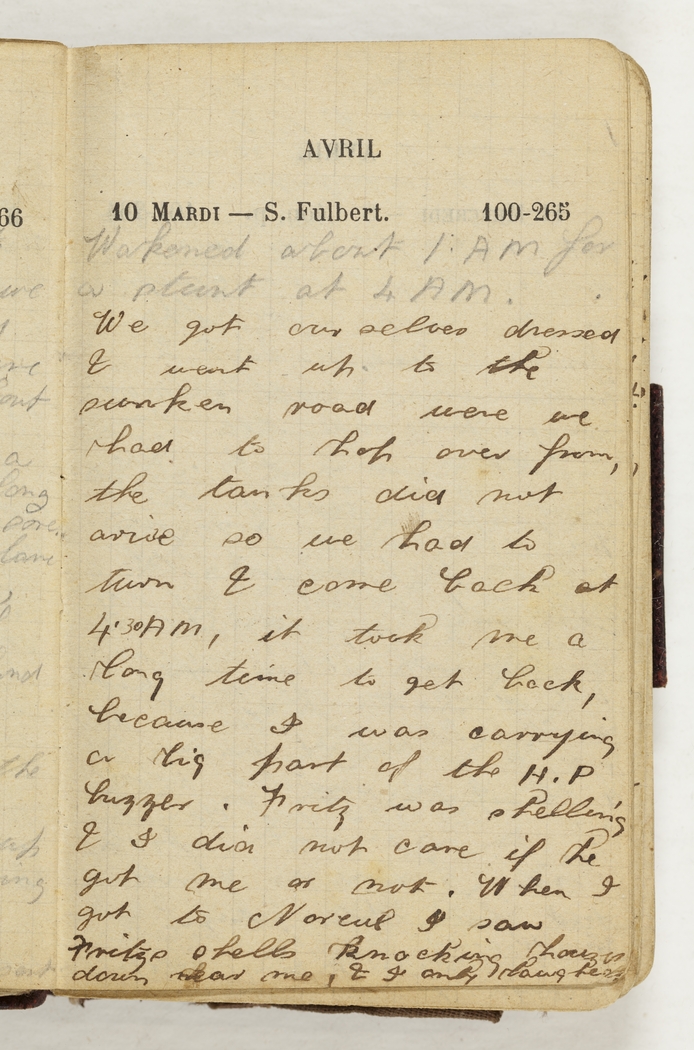 AVRIL
66
10 MARDI — S. Fulbert. 100-265
Wakened about 1 AM for
a stunt at 4 AM.
We got our selves dressed
& went up to the
sunken road were we
had to hop over from,
the tanks did not
arive so we had to
turn & come back at
4.30 AM, it took me a
long time to get back,
because I was carrying
a big part of the H.P
buzzer. Fritz was shelling
& I did not care if he
got me or not. When I
got to Noreul I saw
Fritzs shells knocking houses
down near me, & I only laughed